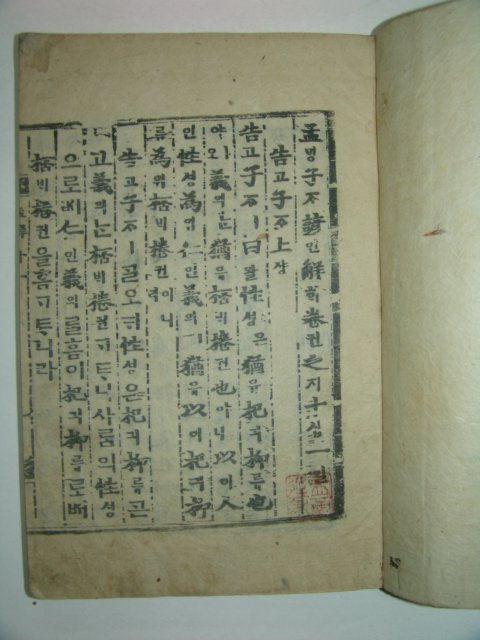 孟ᄆᆡᆼ子ᄌᆞ諺언解ᄒᆡ卷권之지十십一일
告고子ᄌᆞ上샹
告고子ᄌᆞㅣ曰왈性셩은猶유杞긔柳류也
야오義의ᄂᆞᆫ猶유桮ᄇᆡ棬권也야ㅣ니以이人
인性셩爲위仁인義의ㅣ猶유以이杞긔柳
류爲위桮ᄇᆡ棬권이니라
告고子ᄌᆞㅣᄀᆞᆯ오ᄃᆡ性셩은杞긔柳류ᄀᆞᆮ
고義의ᄂᆞᆫ桮ᄇᆡ棬권ᄀᆞᄐᆞ니사ᄅᆞᆷ의性셩
으로ᄡᅥ仁인義의ᄅᆞᆯᄒᆞᆷ이杞긔柳류로ᄡᅥ
桮ᄇᆡ棬권을ᄒᆞᆷᄀᆞᄐᆞ니라